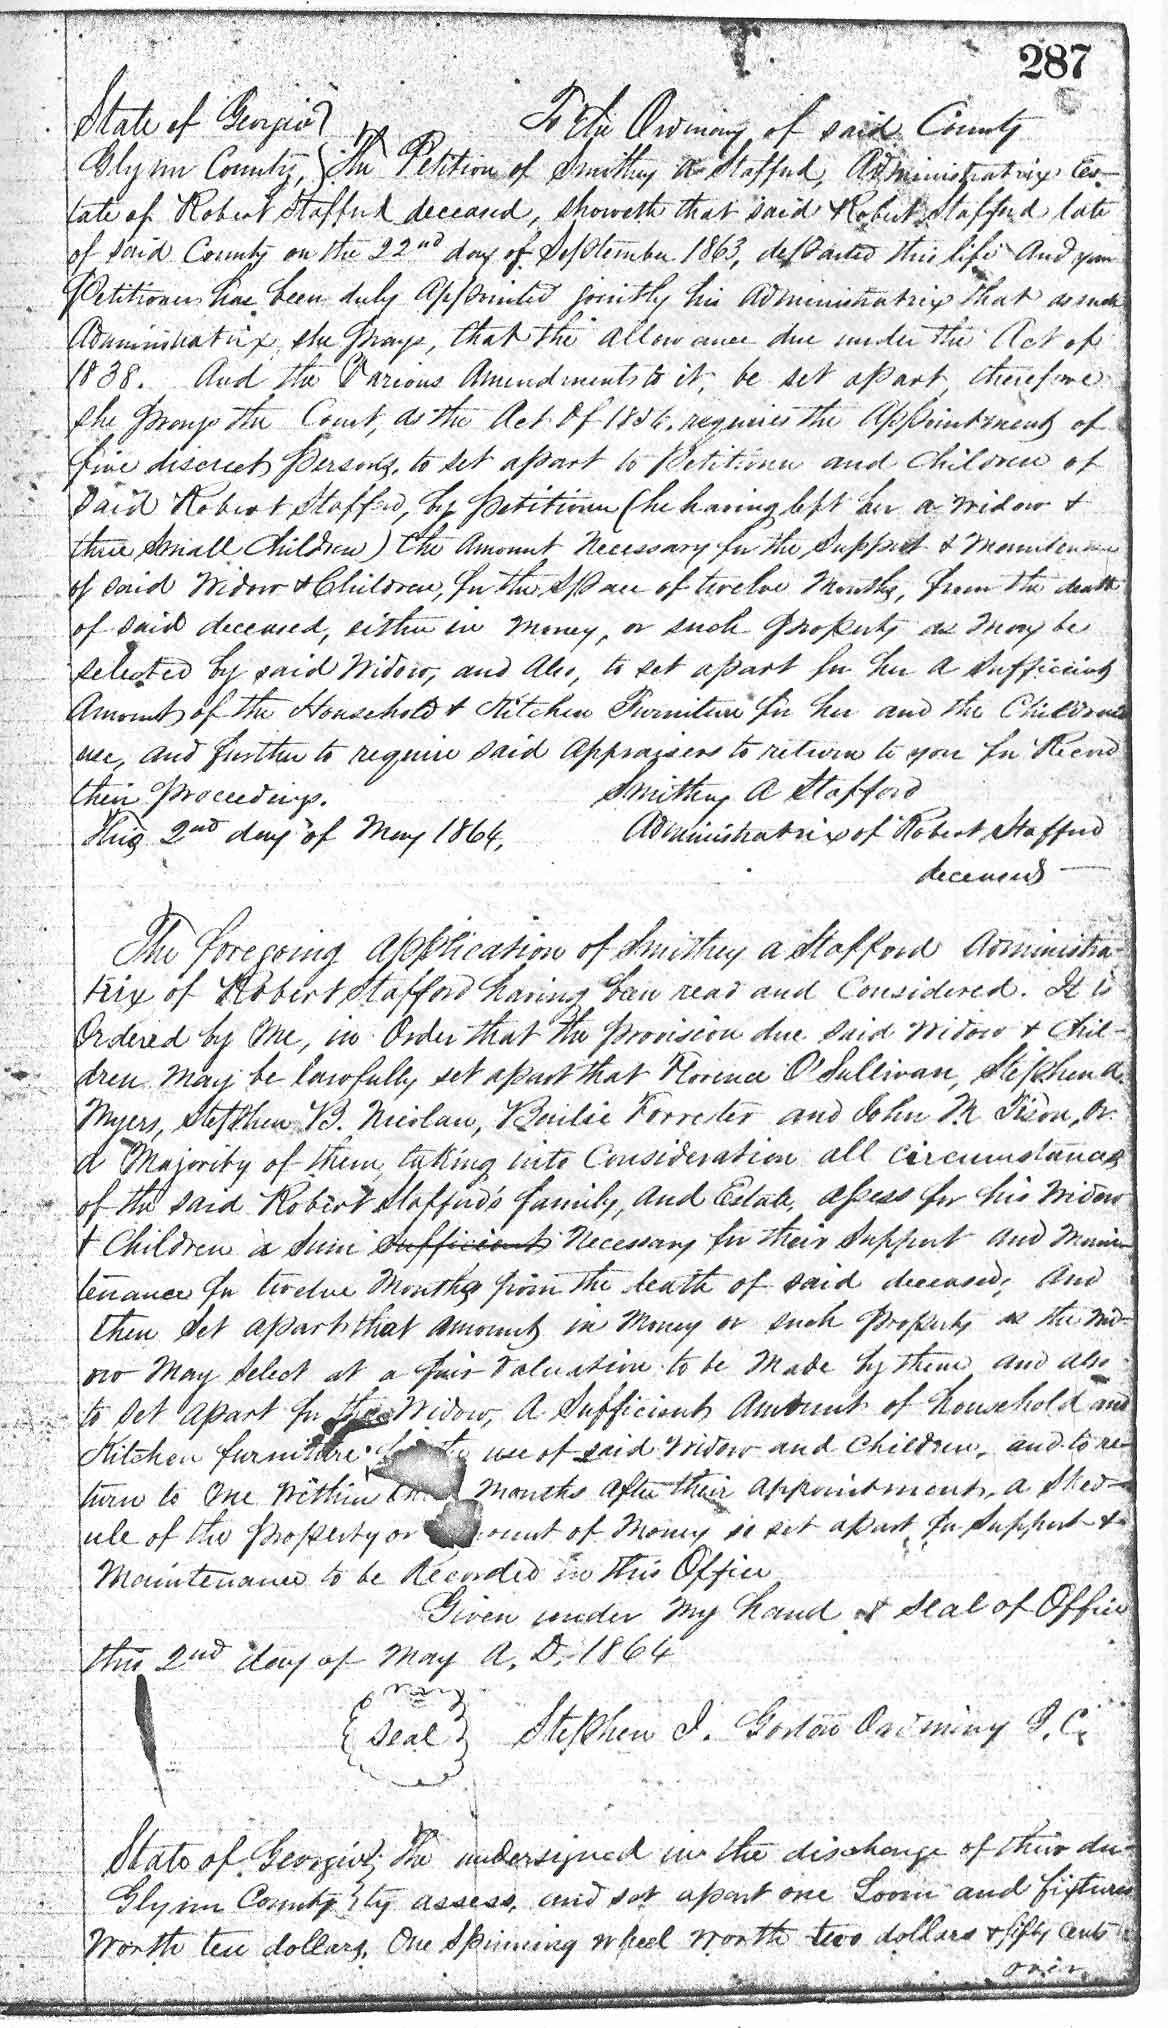 287
State of Georgia } To the Ordinary of said County
Glynn County, } The Petition of Smithey A Stafford, Administratrix Es-
tate of Robert Stafford deceased, showeth that said Robert Stafford late
of said County on the 22nd day of September 1863, departed this life And your
Petitioner has been duly Appointed jointly his Administratrix That as such
Administratrix she prays, that the allowance due under the Act of
1838. And the Various Amendments to it, be set apart, therefore
she prays the Court, as the Act of requires the Appointment of
five discreet persons, to set apart to Petitioner and Children of
said Robert Stafford, by petitioner (he having left her a widow &
three small children) the Amount Necessary for the Support & Maintenance
of said Widow & Children, for the Space of twelve Months, from the death
of said deceased, either in Money, or such property as May be
selected by said Widow, and also, to set apart for her a Sufficient
Amount of the Household & Kitchen Furniture for her and the Childrens
use, and further to require said appraisers to return to you for Record
their proceedings. Smithey A Stafford
This 2nd day of May 1864, Administratrix of Robert Stafford
deceased
The foregoing application of Smithey A Stafford Administra-
trix of Robert Stafford having been read and Considered. It is
Ordered by Me, in Order that the provision due said Widow & Chil-
dren May be lawfully set apart that Florence O'Sullivan, Stephen A.
Myers, Stephen B. Nicolau, Bailie Forrester and John M. Tison, or
a Majority of them, taking into Consideration all circumstances
of the said Robert Stafford's family, and Estate, assess for his Widow
& Children a Sum sufficient Necessary for their Support and Main-
tenance for twelve Months from the death of said deceased, And
then Set apart that amount in Money or such property as the Wid-
ow May Select at a fair Valuation to be Made by them and also
to set apart for the Widow, A Sufficient Amount of household and
Kitchen furniture use of said Widow and Children, and to re-
turn to Me Within Months after their appointment, a Shed-
ule of the property or amount of Money so set apart for Support &
Maintenance to be Recorded in this Office
Given under My hand & seal of Office
this 2nd day of May A. D. 1864
Seal Stephen J. Gorton Ordinary G. C.
State of Georgia } The undersigned in the discharge of their du-
Glynn County } ty assess, and set apart one Loom and fixtures
Worth ten dollars, One Spinning wheel worth two dollars & fifty cents
over